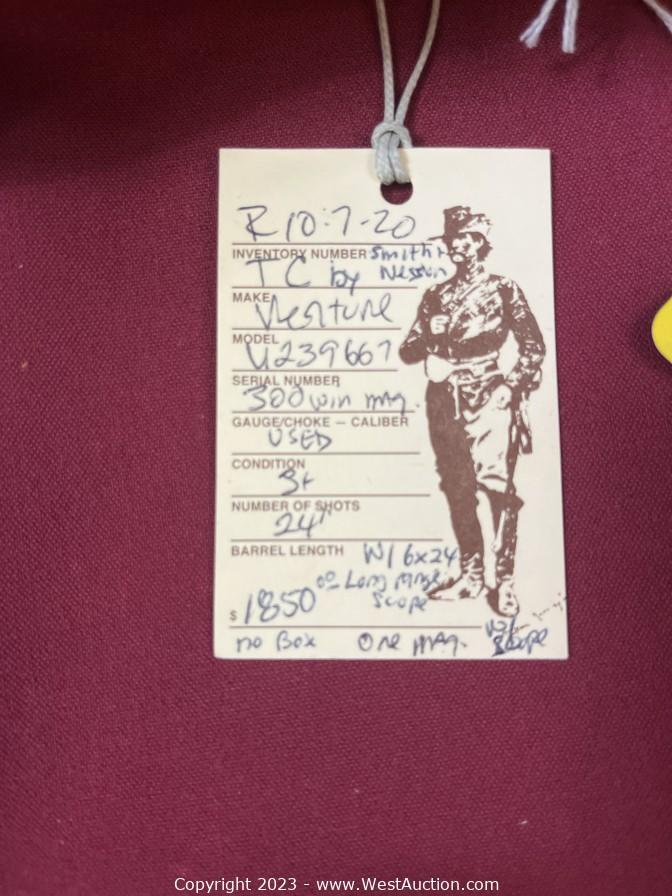 R 10-7-20
INVENTORY NUMBER Smith &
TC by Wesson
MAKE
Venture
MODEL
U239667
SERIAL NUMBER
300 win mag.
GAUGE/CHOKE — CALIBER
USED
CONDITION
3+
NUMBER OF SHOTS
24"
BARREL LENGTH W/ 6x24
Long Range
$ 1850 00 Scope
no Box One mag. w/ Scope
Copyright 2023 - www.WestAuction.com